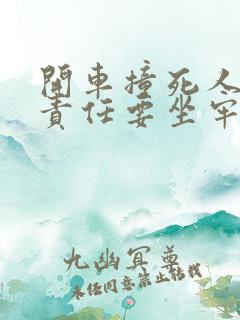 開車撞死人
責任要坐牢
九幽冥尊
未任同意禁止轉載